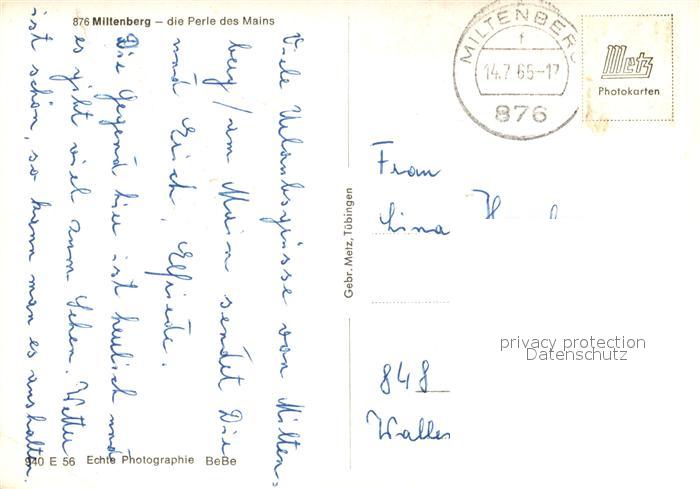 876 Miltenberg — die Perle des Mains
Viele Urlaubsgrüsse von Milten-
berg/am Main sendet Die
und Erich, Elfriede.
Die Gegend hier ist herrlich und
es gibt viel zum Sehen. Wetter
ist schön, so kann man es aushalten.
940 E 56 Echte Photographie BeBe
Gebr. Metz, Tübingen
MILTENBERG
f
14.7.65-17
876
Metz
Photokarten
Frau
Lina
848
privacy protection
Datenschutz